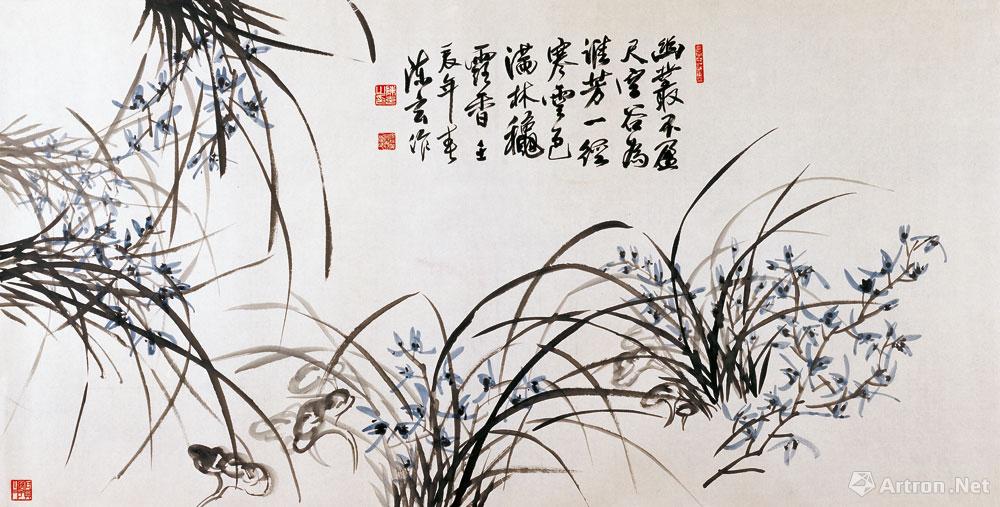 幽叢不盈
尺空谷為
誰芳一徑
寒雲色
滿林龝
露香壬
辰年春
陳玄作
Artron.Net